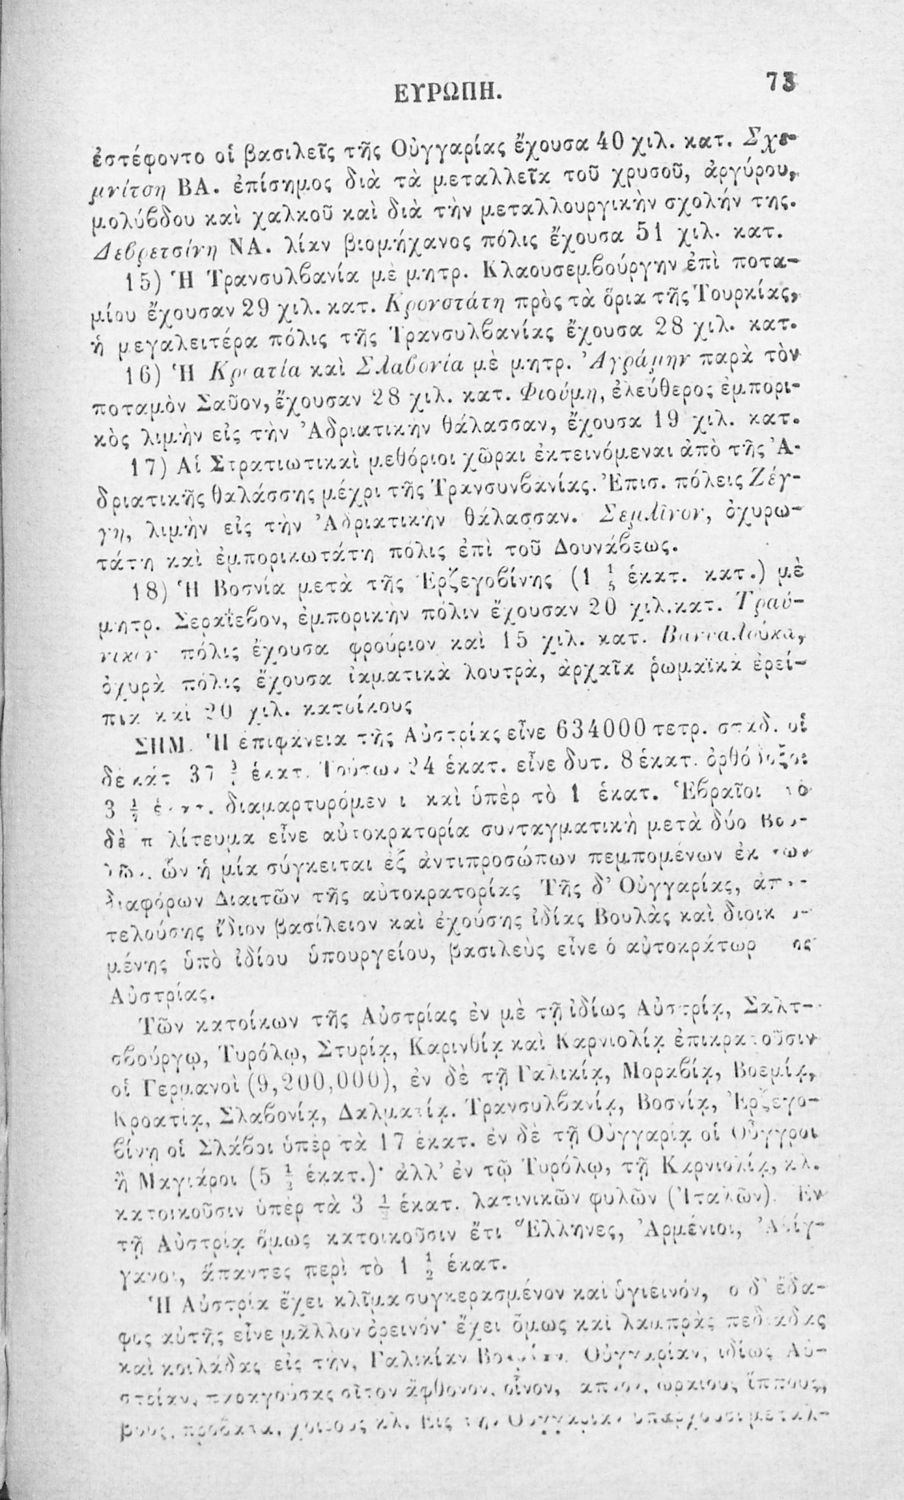 ΕΥΡΩΠΗ. 73
ἐστέφοντο οἱ βασιλεῖς τῆς Οὐγγαρίας ἔχουσα 40 χιλ. κατ. Σχε-
μνίτση ΒΑ. ἐπίσημος διὰ τὰ μεταλλεῖα τοῦ χρυσοῦ, ἀργύρου,
μολύβδου καὶ χαλκοῦ καὶ διὰ τὴν μεταλλουργικὴν σχολήν της.
Δεβρετσίνη ΝΑ. λίαν βιομήχανος πόλις ἔχουσα 51 χιλ. κατ.
15) Ἡ Τρανσυλβανία μὲ μητρ. Κλαουσεμβούργην ἐπὶ ποτα-
μίου ἔχουσαν 29 χιλ. κατ. Κρονστάτη πρὸς τὰ ὅρια τῆς Τουρκίας,
ἡ μεγαλειτέρα πόλις τῆς Τρανσυλβανίας ἔχουσα 28 χιλ. κατ.
16) Ἡ Κροατία καὶ Σλαβονία μὲ μητρ. Ἀγράμην παρὰ τὸν
ποταμὸν Σαῦον, ἔχουσαν 28 χιλ. κατ. Φιούμη, ἐλεύθερος ἐμπορι-
κὸς λιμὴν εἰς τὴν Ἀδριατικὴν θάλασσαν, ἔχουσα 19 χιλ. κατ.
17) Αἱ Στρατιωτικαὶ μεθόριοι χῶραι ἐκτεινόμεναι ἀπὸ τῆς Ἀ-
δριατικῆς θαλάσσης μέχρι τῆς Τρανσυνβανίας. Ἐπισ. πόλεις Ζέγ-
γη, λιμὴν εἰς τὴν Ἀδριατικὴν θάλασσαν. Σεμλῖνον, ὀχυρω-
τάτη καὶ ἐμπορικωτάτη πόλις ἐπὶ τοῦ Δουνάβεως.
18) Ἡ Βοσνία μετὰ τῆς Ἐρζεγοβίνης (1 ἑκατ. κατ.) μὲ
μητρ. Σεραΐεβον, ἐμπορικὴν πόλιν ἔχουσαν 20 χιλ. κατ. Τραύ-
νικον πόλις ἔχουσα φρούριον καὶ 15 χιλ. κατ. Βανιαλούκα,
ὀχυρὰ πόλις ἔχουσα ἰαματικὰ λουτρὰ, ἀρχαῖα ῥωμαϊκὰ ἐρεί-
πια καὶ 20 χιλ. κατοίκους
ΣΗΜ. Ἡ ἐπιφάνεια τῆς Αὐστρίας εἶνε 634000 τετρ. σταδ. οἱ
δὲ κάτ 37 ἑκατ. Τούτων 24 ἑκατ. εἶνε δυτ. 8 ἑκατ. ὀρθόδοξοι
3 ½ ἑκατ. διαμαρτυρόμενοι καὶ ὑπὲρ τὸ 1 ἑκατ. Ἑβραῖοι τὸ
δὲ πολίτευμα εἶνε αὐτοκρατορία συνταγματικὴ μετὰ δύο Βου-
λῶν, ὧν ἡ μία σύγκειται ἐξ ἀντιπροσώπων πεμπομένων ἐκ τῶν
διαφόρων Διαιτῶν τῆς αὐτοκρατορίας Τῆς δ' Οὐγγαρίας, ἀπο-
τελούσης ἴδιον βασίλειον καὶ ἐχούσης ἰδίας Βουλὰς καὶ διοικ
μένης ὑπὸ ἰδίου ὑπουργείου, βασιλεὺς εἶνε ὁ αὐτοκράτωρ ης
Αὐστρίας.
Τῶν κατοίκων τῆς Αὐστρίας ἐν μὲ τῇ ἰδίως Αὐστρίᾳ, Σαλτ-
σβούργῳ, Τυρόλῳ, Στυρίᾳ, Καρινθίᾳ καὶ Καρνιολίᾳ ἐπικρατοῦσιν
οἱ Γερμανοὶ (9,200,000), ἐν δὲ τῇ Γαλικίᾳ, Μοραβίᾳ, Βοεμίᾳ,
Κροατίᾳ, Σλαβονίᾳ, Δαλματίᾳ. Τρανσυλβανίᾳ, Βοσνίᾳ, Ἐρζεγο-
βίνῃ οἱ Σλάβοι ὑπὲρ τὰ 17 ἑκατ. ἐν δὲ τῇ Οὐγγαρίᾳ οἱ Οὗγγροι
ἢ Μαγιάροι (5 ½ ἑκατ.)· ἀλλ' ἐν τῷ Τυρόλῳ, τῇ Καρνιολίᾳ, κλ.
κατοικοῦσιν ὑπὲρ τὰ 3 ½ ἑκατ. λατινικῶν φυλῶν (Ἰταλῶν). Ἐν
τῇ Αὐστρίᾳ ὅμως κατοικοῦσιν ἔτι Ἕλληνες, Ἀρμένιοι, Ἀθίγ-
γανοι, ἅπαντες περὶ τὸ 1 ½ ἑκατ.
Ἡ Αὐστρία ἔχει κλῖμα συγκερασμένον καὶ ὑγιεινόν, ο δ' ἔδα-
φος αὐτῆς εἶνε μᾶλλον ὀρεινόν· ἔχει ὅμως καὶ λαμπρὰς πεδιάδας
καὶ κοιλάδας εἰς τὴν, Γαλικίαν Βοεμίαν, Οὐγγαρίαν, ἰδίως Αὐ-
στρίαν, παραγούσας σῖτον ἄφθονον, οἶνον, ὡραίους ἵππους,
βους, πρόβατα, χοίρους κλ. Εἰς τὴν Οὐγγαρίαν ὑπάρχουσι μεταλ-